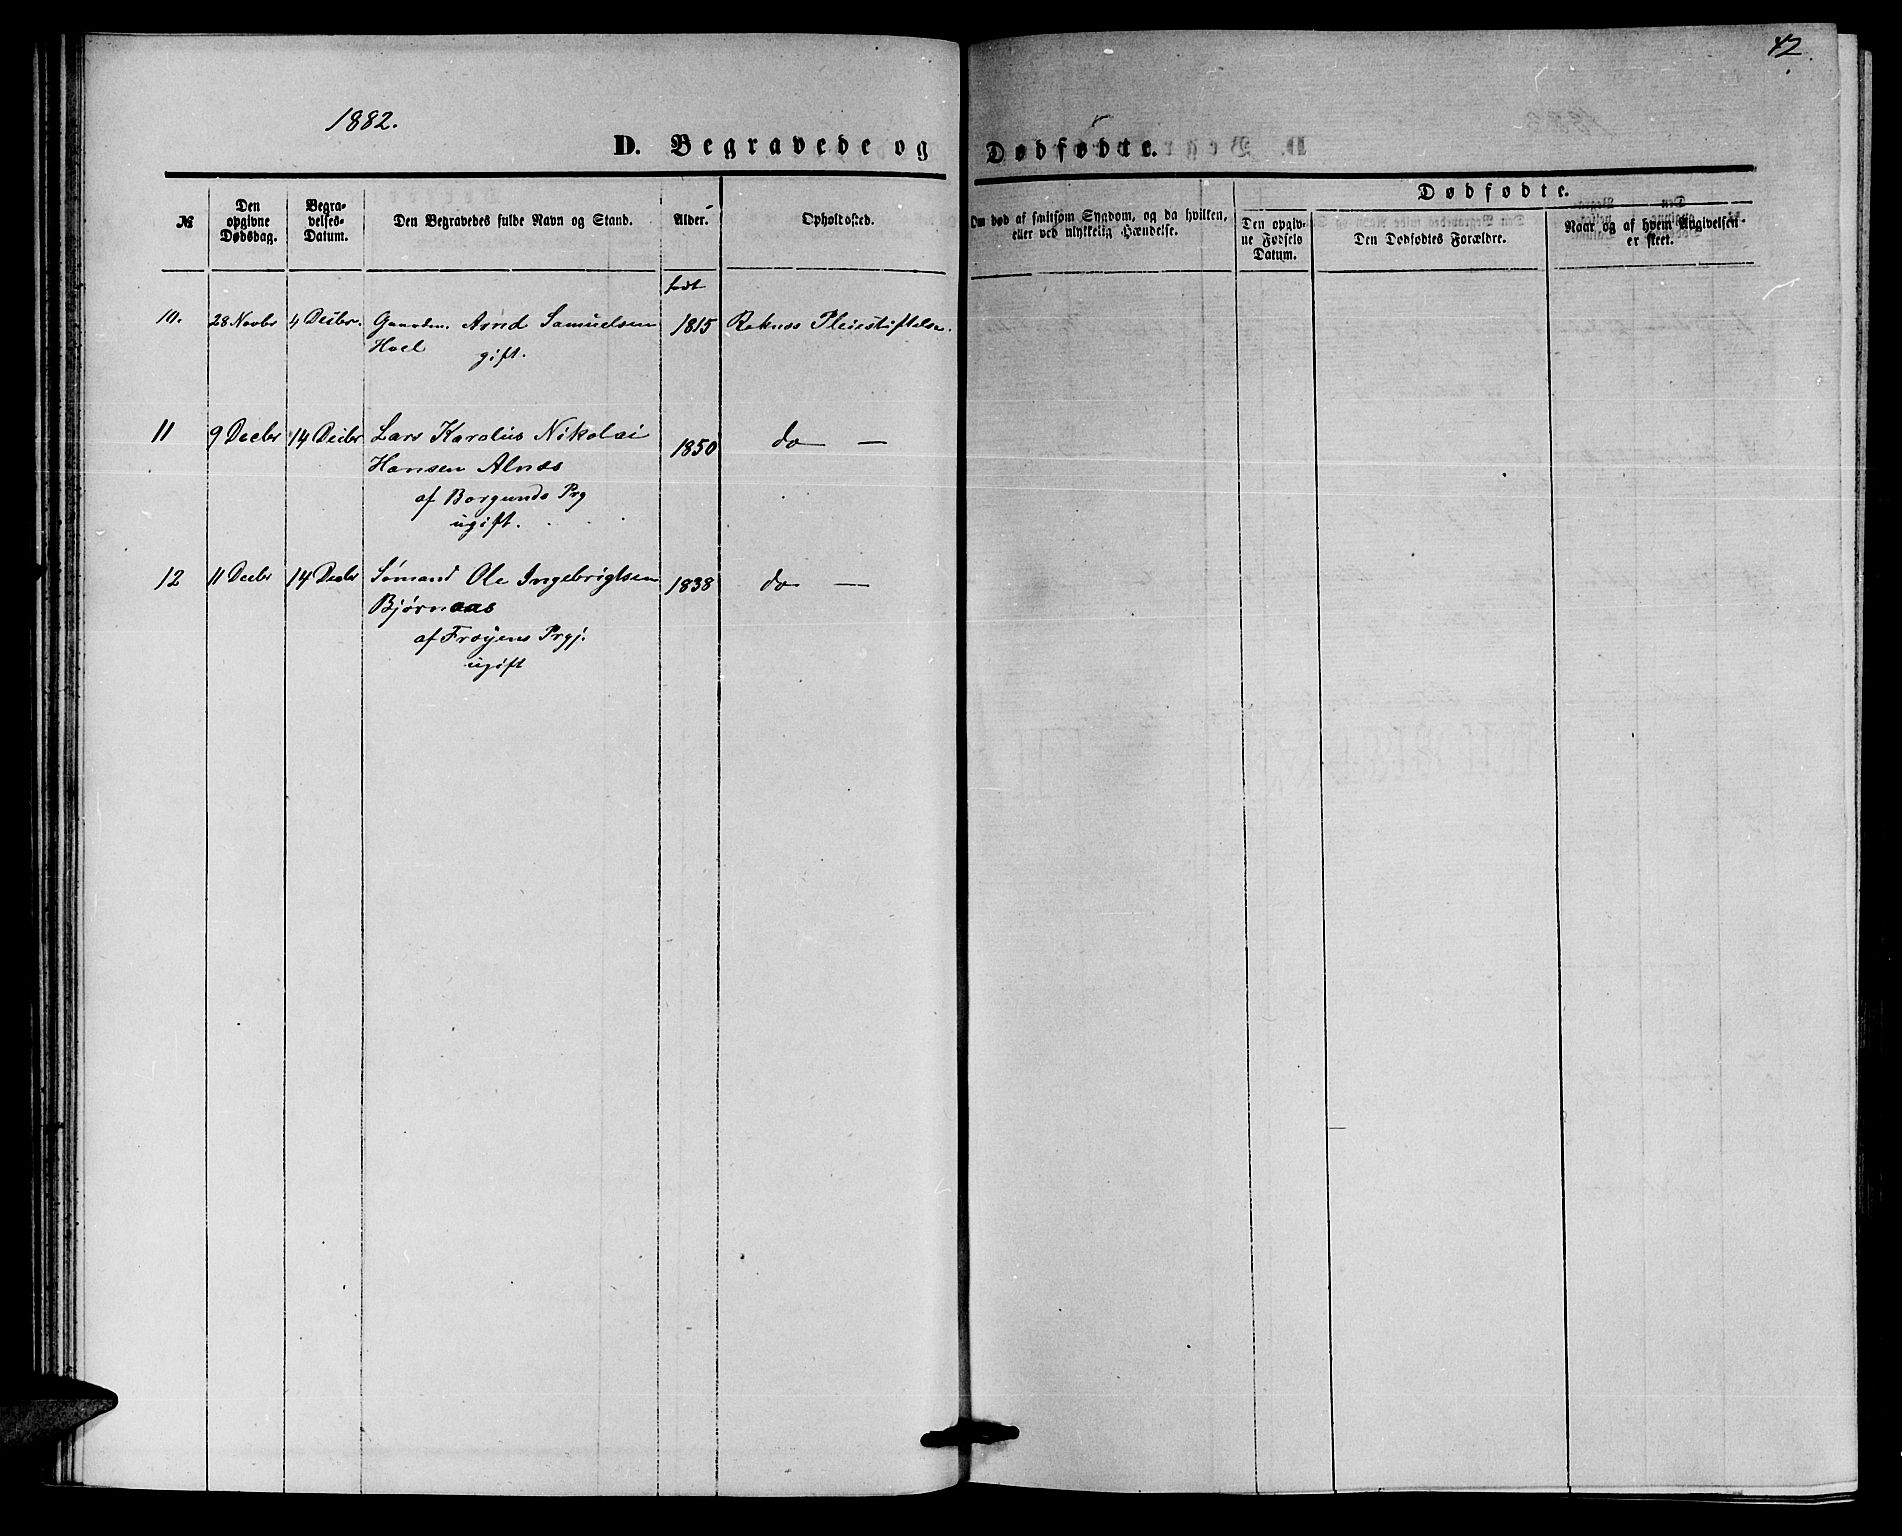 42.
1882.
D. Begravede og Dødfødte.
№
Den opgivne Dødsdag.
Begravelses-Datum.
Den Begravedes fulde Navn og Stand.
Alder.
Opholdssted.
Om død af smitsom Sygdom, og da hvilken, eller ved ulykkelig Hændelse.
Dødfødte.
Den opgivne Fødsels Datum.
Den Dødfødtes Forældre.
Naar og af hvem Angivelsen er skeet.
født
10. 28 Novbr 4 Decbr. Gaardm. Arnd Samuelsen 1815 Reknæs Pleiestiftelse.
Hoel gift.
11 9 Decbr 14 Decbr Lars Karolius Nikolai 1850 do —
Hansen Alnæs
af Borgunds Prg
ugift.
12 11 Decbr 14 Decbr Sømand Ole Ingebrigtsen 1838 do —
Bjørnaas
af Frøyens Prgj.
ugift